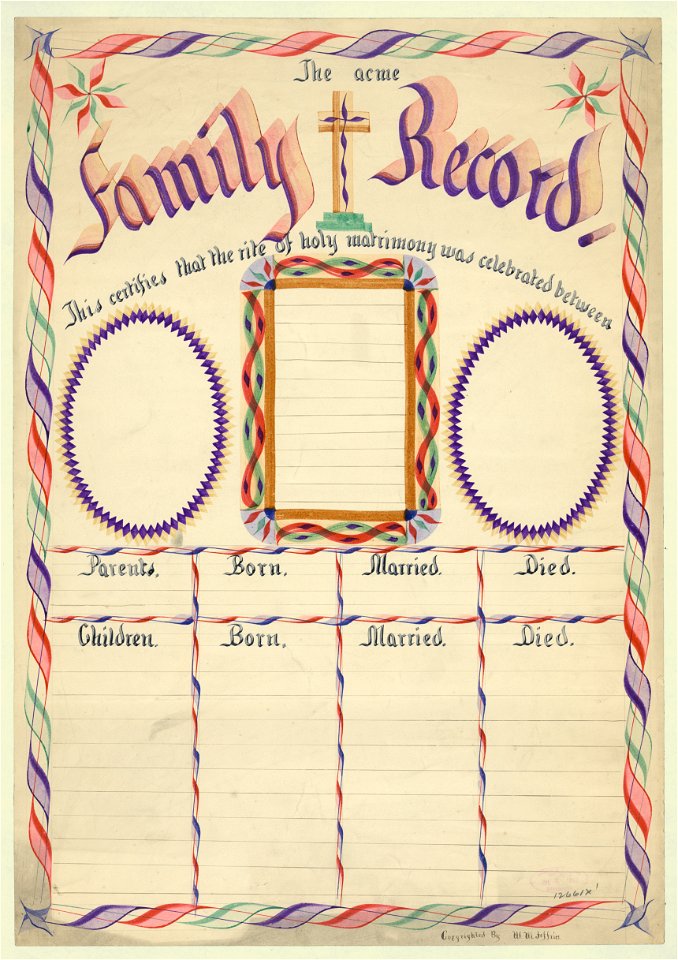 The acme
Family Record.
This certifies that the rite of holy matrimony was celebrated between
Parents. Born. Married. Died.
Children. Born. Married. Died.
12661X1
Copyrighted By